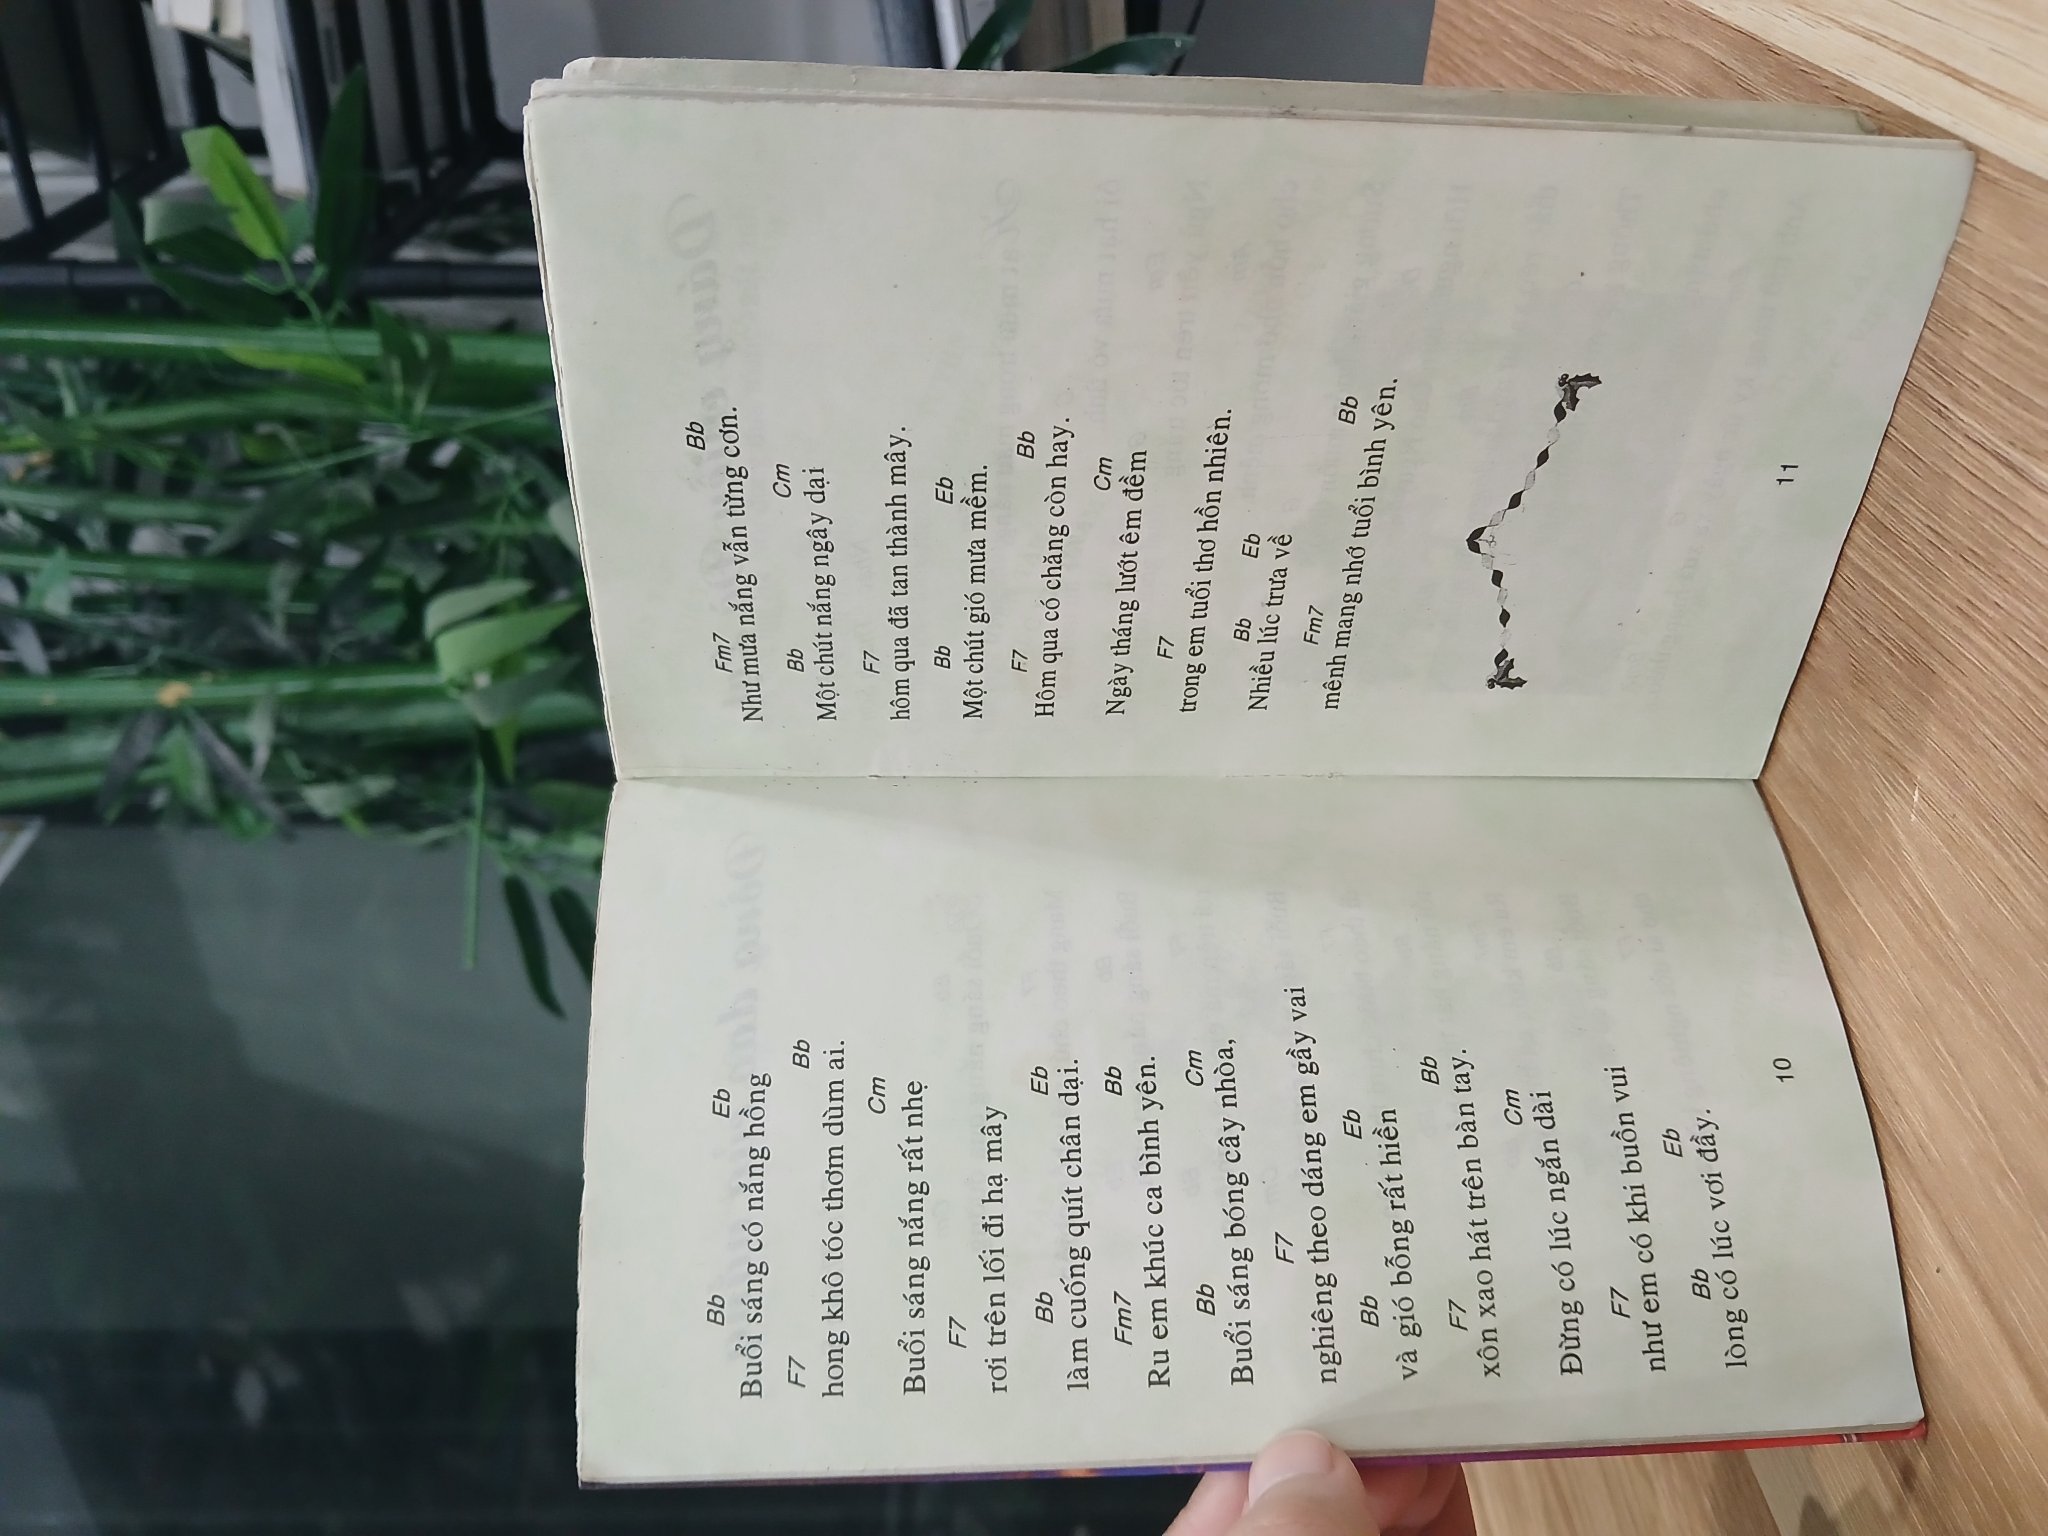 Bb Eb
Buổi sáng có nắng hồng
F7 Bb
hong khô tóc thơm dùm ai.
Cm
Buổi sáng nắng rất nhẹ
F7
rơi trên lối đi hạ mây
Bb Eb
làm cuống quít chân dại.
Fm7 Bb
Ru em khúc ca bình yên.
Bb Cm
Buổi sáng bóng cây nhòa,
F7
nghiêng theo dáng em gầy vai
Bb Eb
và gió bỗng rất hiền
F7 Bb
xôn xao hát trên bàn tay.
Cm
Đừng có lúc ngắn dài
F7
như em có khi buồn vui
Bb Eb
lòng có lúc vơi đầy.
10
Fm7 Bb
Như mưa nắng vẫn từng cơn.
Bb Cm
Một chút nắng ngây dại
F7
hôm qua đã tan thành mây.
Bb Eb
Một chút gió mưa mềm.
F7 Bb
Hôm qua có chăng còn hay.
Cm
Ngày tháng lướt êm đềm
F7
trong em tuổi thơ hồn nhiên.
Bb Eb
Nhiều lúc trưa về
Fm7 Bb
mênh mang nhớ tuổi bình yên.
11